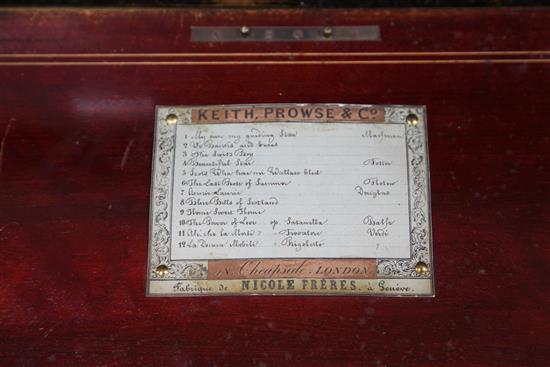 KEITH, PROWSE & Co.
1 My own my guiding Star
2 Ye Banks and braes
3 The Swiss Boy
4 Beautiful Star
5 Scots Wha hae wi Wallace bled
6 The Last Rose of Summer Flotow
7 Annie Laurie Douglas
8 Blue Bells of Scotland
9 Home Sweet Home
10 The Power of Love op. Satanella Balfe
11 Ah, che la Morte " Trovatore Verdi
12 La Donna Mobile " Rigoletto "
48, Cheapside, LONDON.
Fabrique de NICOLE FRÈRES. à Genève.